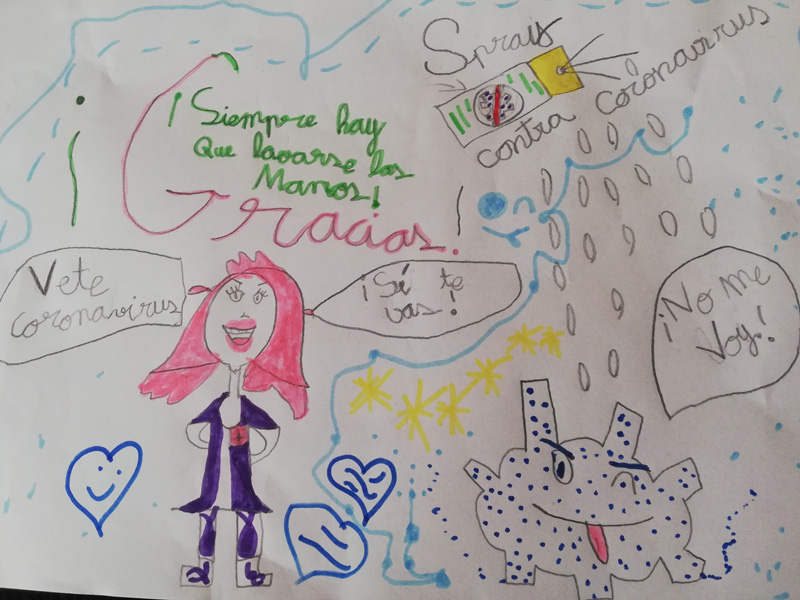 Sprays
contra coronavirus
¡Siempre hay
Que lavarse las
Manos!
¡Gracias!
Vete
coronavirus
¡Sí te
vas!
¡No me
Voy!